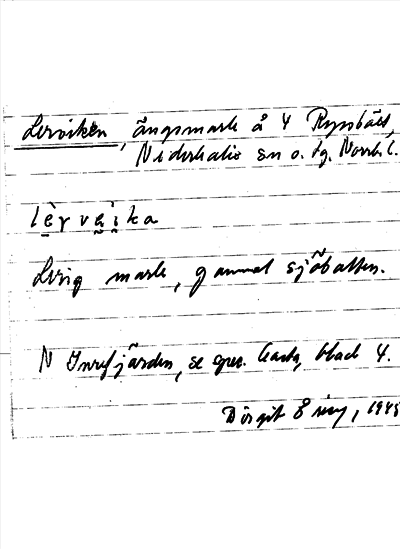 Lerviken, ängsmark å 4 Rypsbäck,
Nederkalix sn o. tg. Norrb. l.
lèrvèika
Lerig mark, gammal sjöbotten.
N Inrefjärden, se spec. karta, blad 4.
Birgit 1945